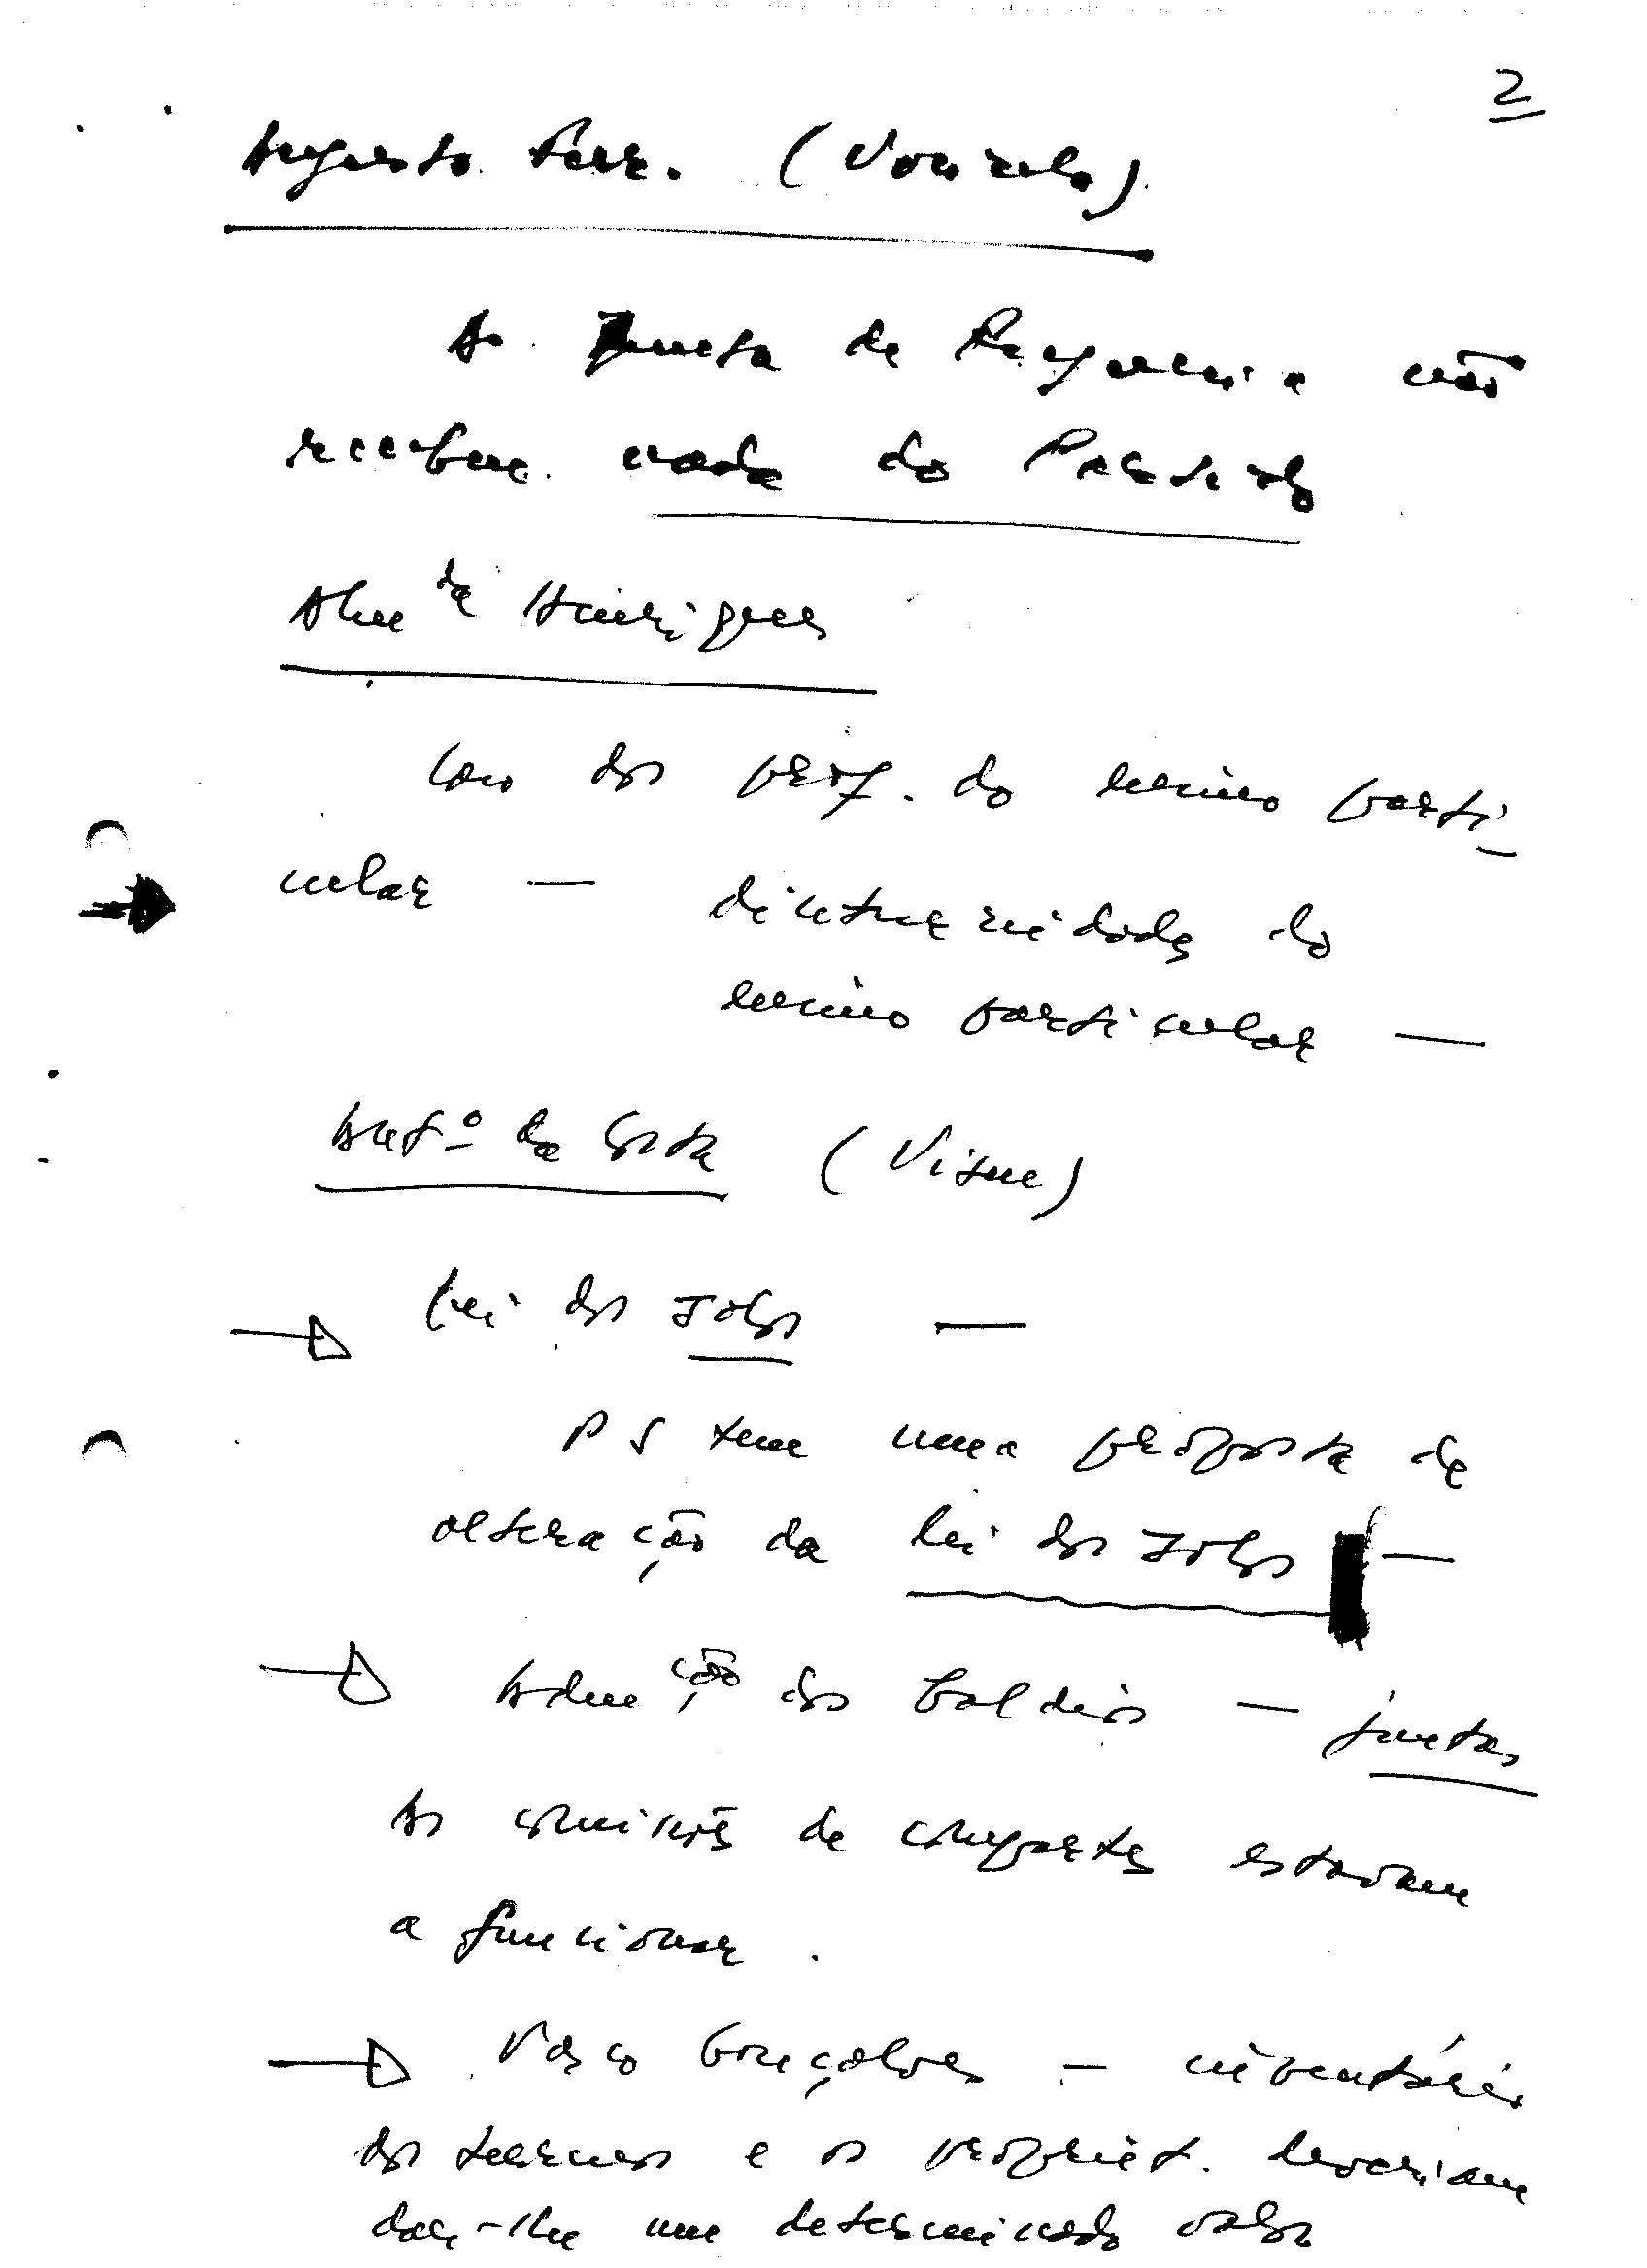 2
Augusto (Vouzela)
A Junta de Freguesia não
recebeu nada do Partido
Alm da Henriques
Caso dos prof. do ensino parti-
cular — do
ensino particular —
Antº da Costa (Viseu)
Lei dos Solos —
PS tem uma proposta de
alteração da lei dos Solos —
Admção dos baldios — juntas
As comissões de compartes estavam
a funcionar.
Vasco Gonçalves — inventário
dos terrenos e os propriet. deveriam
dar-lhe um determinado valor